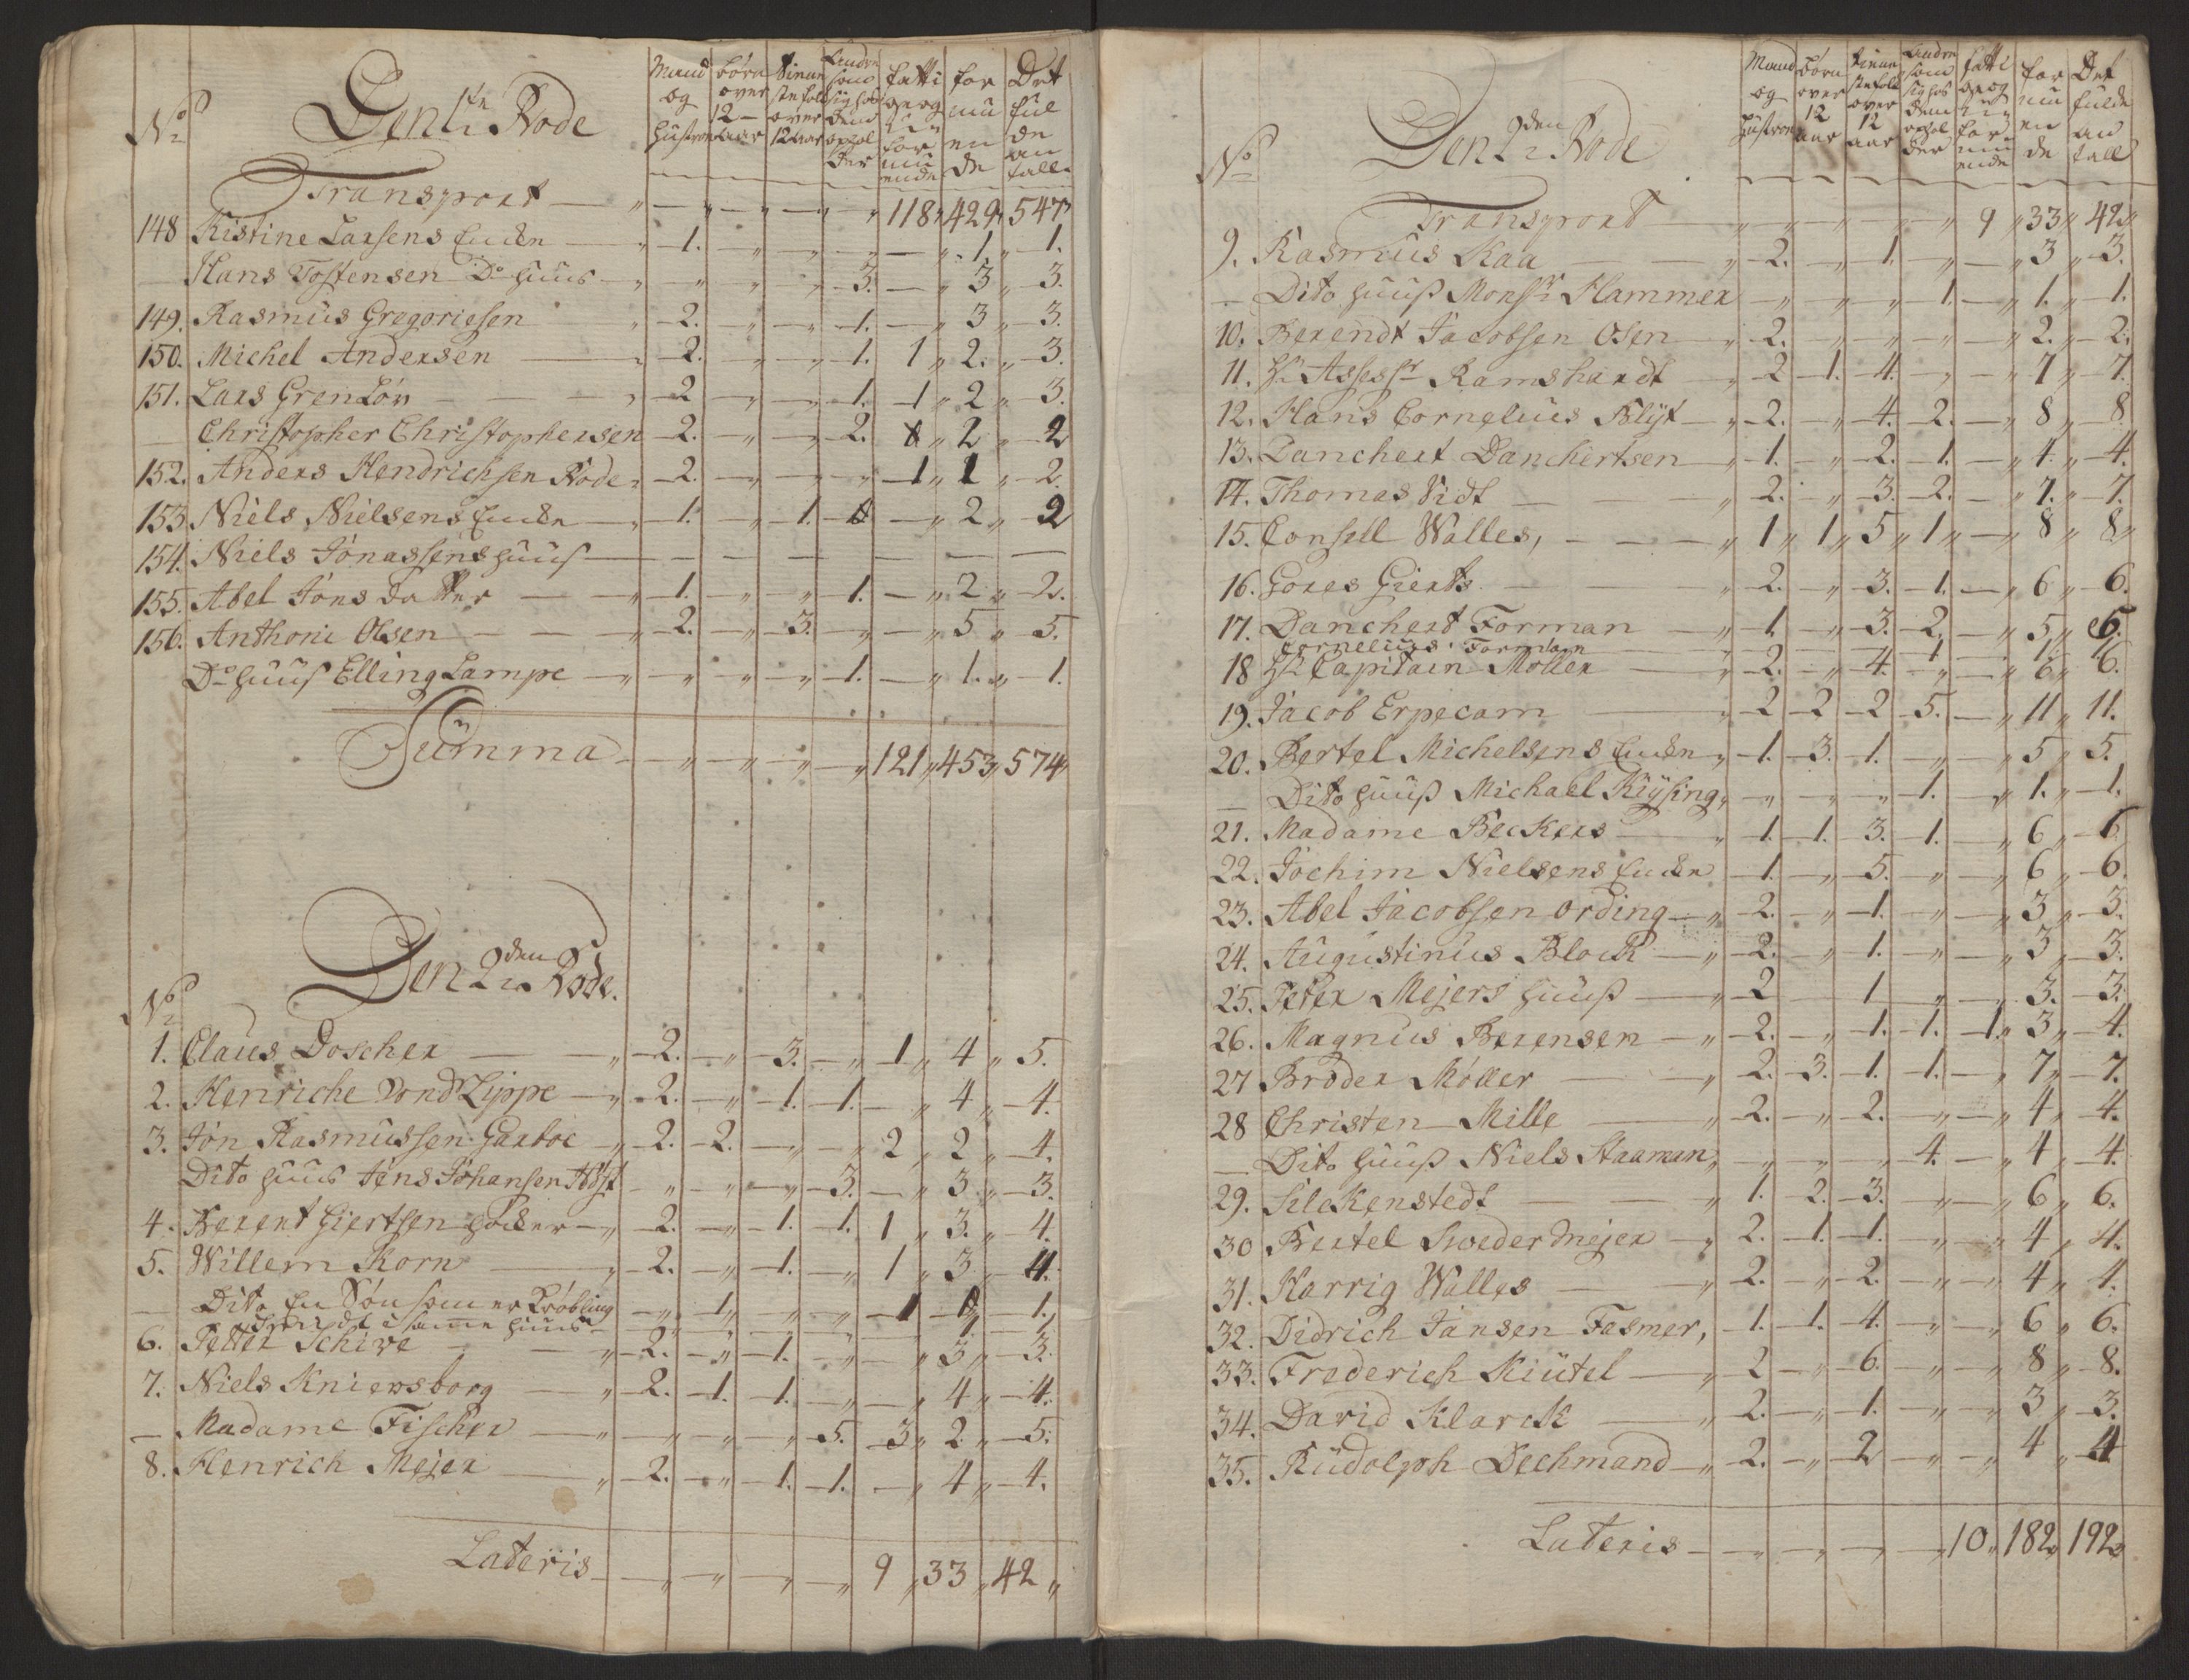 No Den 1te Rode Mand og Hustroe Børn over 12 aar Tieneste folk over 12 aar Andre som sig hos dem opholder fatti ge og u for mu ende for mu en de Det ful de an tall
Transport — „ — „ — „ — „ — „ 118 „ 429 „ 547 „
148 Kistine Larsens Encke — „ 1. „ — „ — „ 1 „ 1.
— Hans Tostensen Do Huus — „ „ „ „ 3. — „ 3 „ 3.
149. Rasmus Gregoriesen „ 2. „ — „ 1. — „ 3 „ 3.
150. Michel Andersen — „ 2. „ „ 1. 1 „ 2. „ 3.
151. Lars Grenløv — „ 2 — „ — „ 1. 1 „ 2 „ 3.
— Christopher Christophersen 2. — „ — „ 2. „ 2 „ 2
152. Anders Hendrichsen Rode „ 2. — „ — „ — „ 1 „ 1 „ 2.
153 Niels Nielsens Encke — „ 1. — „ 1. — „ 2 „ 2
154. Niels Jonassens Huus — — — — — — — —
155. Abel Jons datter — „ 1. — „ — „ 1. — „ 2 „ 2.
156. Anthoni Olsen — „ 2. — „ 3. — „ — „ 5 „ 5.
Do Huus Elling Lampe — „ — „ — „ — „ 1. — „ 1. „ 1.
Summa — „ — „ — „ — „ 121 „ 453 „ 574 „
No Den 2den Rode.
1. Claus Doscher — „ 2. — „ 3. — „ 1 „ 4 „ 5.
2. Henriche Vond Lippe — „ 2. — „ 1. 1. — „ 4 „ 4.
3. Jón Rasmussen Garboe — „ 2. 2. — „ — „ 2 „ 2 „ 4.
Dito Huus Jens Johansen Høst — „ — „ — „ 3. — „ 3 „ 3.
4. Berent Giertsen Hocker — „ 2. — „ 1. 1. 1 „ 3. „ 4.
5. Willem Korn — „ 2. — „ 1. — „ 1 „ 3 „ 4.
— Dito En Søn som er Krøbling — „ 1 „ — „ — „ 1 1.
samme Huus
6. Petter Schive — „ 2. — „ 1. — „ — „ 3 „ 3.
7. Niels Kniewsborg — „ 2. 1. 1. — „ — „ 4 „ 4.
— Madame Fischer — „ — „ — „ — „ 5. 3 „ 2 „ 5.
8. Henrich Mejer — „ 2. — „ 1. 1. — „ 4 „ 4.
Lateris — „ — „ — „ — „ 9 „ 33 „ 42 „
No Den 2den Rode Mand og Hustroe Børn over 12 aar Tiene ste folk over 12 aar Andre som sig hos dem ophol der fatti ge og u for mu ende for mu en de Det fulde an tall
Transport — „ — „ — „ — „ 9 „ 33 „ 42 „
9. Rasmus Kaa — „ 2. — „ 1. — „ — „ 3 „ 3.
— Dito Huus Monsr Hammer — „ — „ — „ 1. — „ 1. „ 1.
10. Berendt Jacobsen Osen — „ 2. — „ — „ — „ — „ 2. „ 2.
11. Hr Assessr Ramshardt — „ 2 1. 4. — „ — „ 7 „ 7.
12. Hans Cornelius Blijt — „ 2. — „ 4. 2. — „ 8 „ 8
13. Danchert Danchertsen — „ 1. — „ 2. 1. — „ 4. „ 4.
14. Thomas Vidt — „ 2. — „ 3. 2. — „ 7. „ 7.
15. Consull Walles, — „ 1 „ 1 „ 5 „ 1 „ — „ 8 „ 8 „
16. Gores Gierts — „ 2. — „ 3. 1. — „ 6 „ 6.
17. Danchert Forman — „ 1 — „ 3. 2. — „ 5 „ 6.
Cornelius Forman — 1
18 Hr Capitain Møller — „ 2. — „ 4. — „ — „ 6 „ 6.
19. Jacob Erpecam — „ 2 2 2 5. — „ 11 „ 11.
20. Bertel Michelsens Encke „ 1. 3. 1. — „ — „ 5 „ 5
— Dito Huus Michael Kiÿsing, — „ — „ — „ 1. — „ 1. „ 1.
21. Madame Beckers — „ 1. 1. 3. 1. — „ 6 „ 6
22. Jochim Nielsens Encke 1. — „ 5. — „ — „ 6 „ 6.
23. Abel Jacobsen Ording — „ 2. — „ 1. — „ — „ 3 „ 3.
24. Augustinus Block — „ 2. — „ 1. — „ — „ 3 „ 3.
25. Peter Mejers Huus — „ 2 1 — „ — „ 3. „ 3.
26. Magnus Berensen — „ 2. — „ 1. 1. 1. „ 3 „ 4.
27 Broder Møller — „ 2. 3. 1. 1. — „ 7 „ 7.
28 Christen Mille — „ 2. — „ 2. — „ — „ 4 „ 4.
— Dito Huus Niels Staaman, — „ — „ — „ 4. — „ 4 „ 4.
29. Silckenstedt — „ 1. 2. 3. — „ — „ 6 „ 6.
30 Bertel Swedermejer — „ 2. 1. 1. — „ — „ 4 „ 4.
31. Harrig Walles — „ 2. — „ 2. — „ — „ 4 „ 4.
32. Didrich Jansen Fasmer, 1. 1. 4. — „ — „ 6 „ 6.
33. Frederich Kiütel — „ 2 — „ 6. — „ — „ 8 „ 8.
34. David Klarck — „ 2. — „ 1. — „ — „ 3 „ 3.
35. Rudolph Dechmand — „ 2. — „ 2 — „ — „ 4 „ 4
Lateris — „ — „ — „ — „ 10 „ 182 „ 192 „